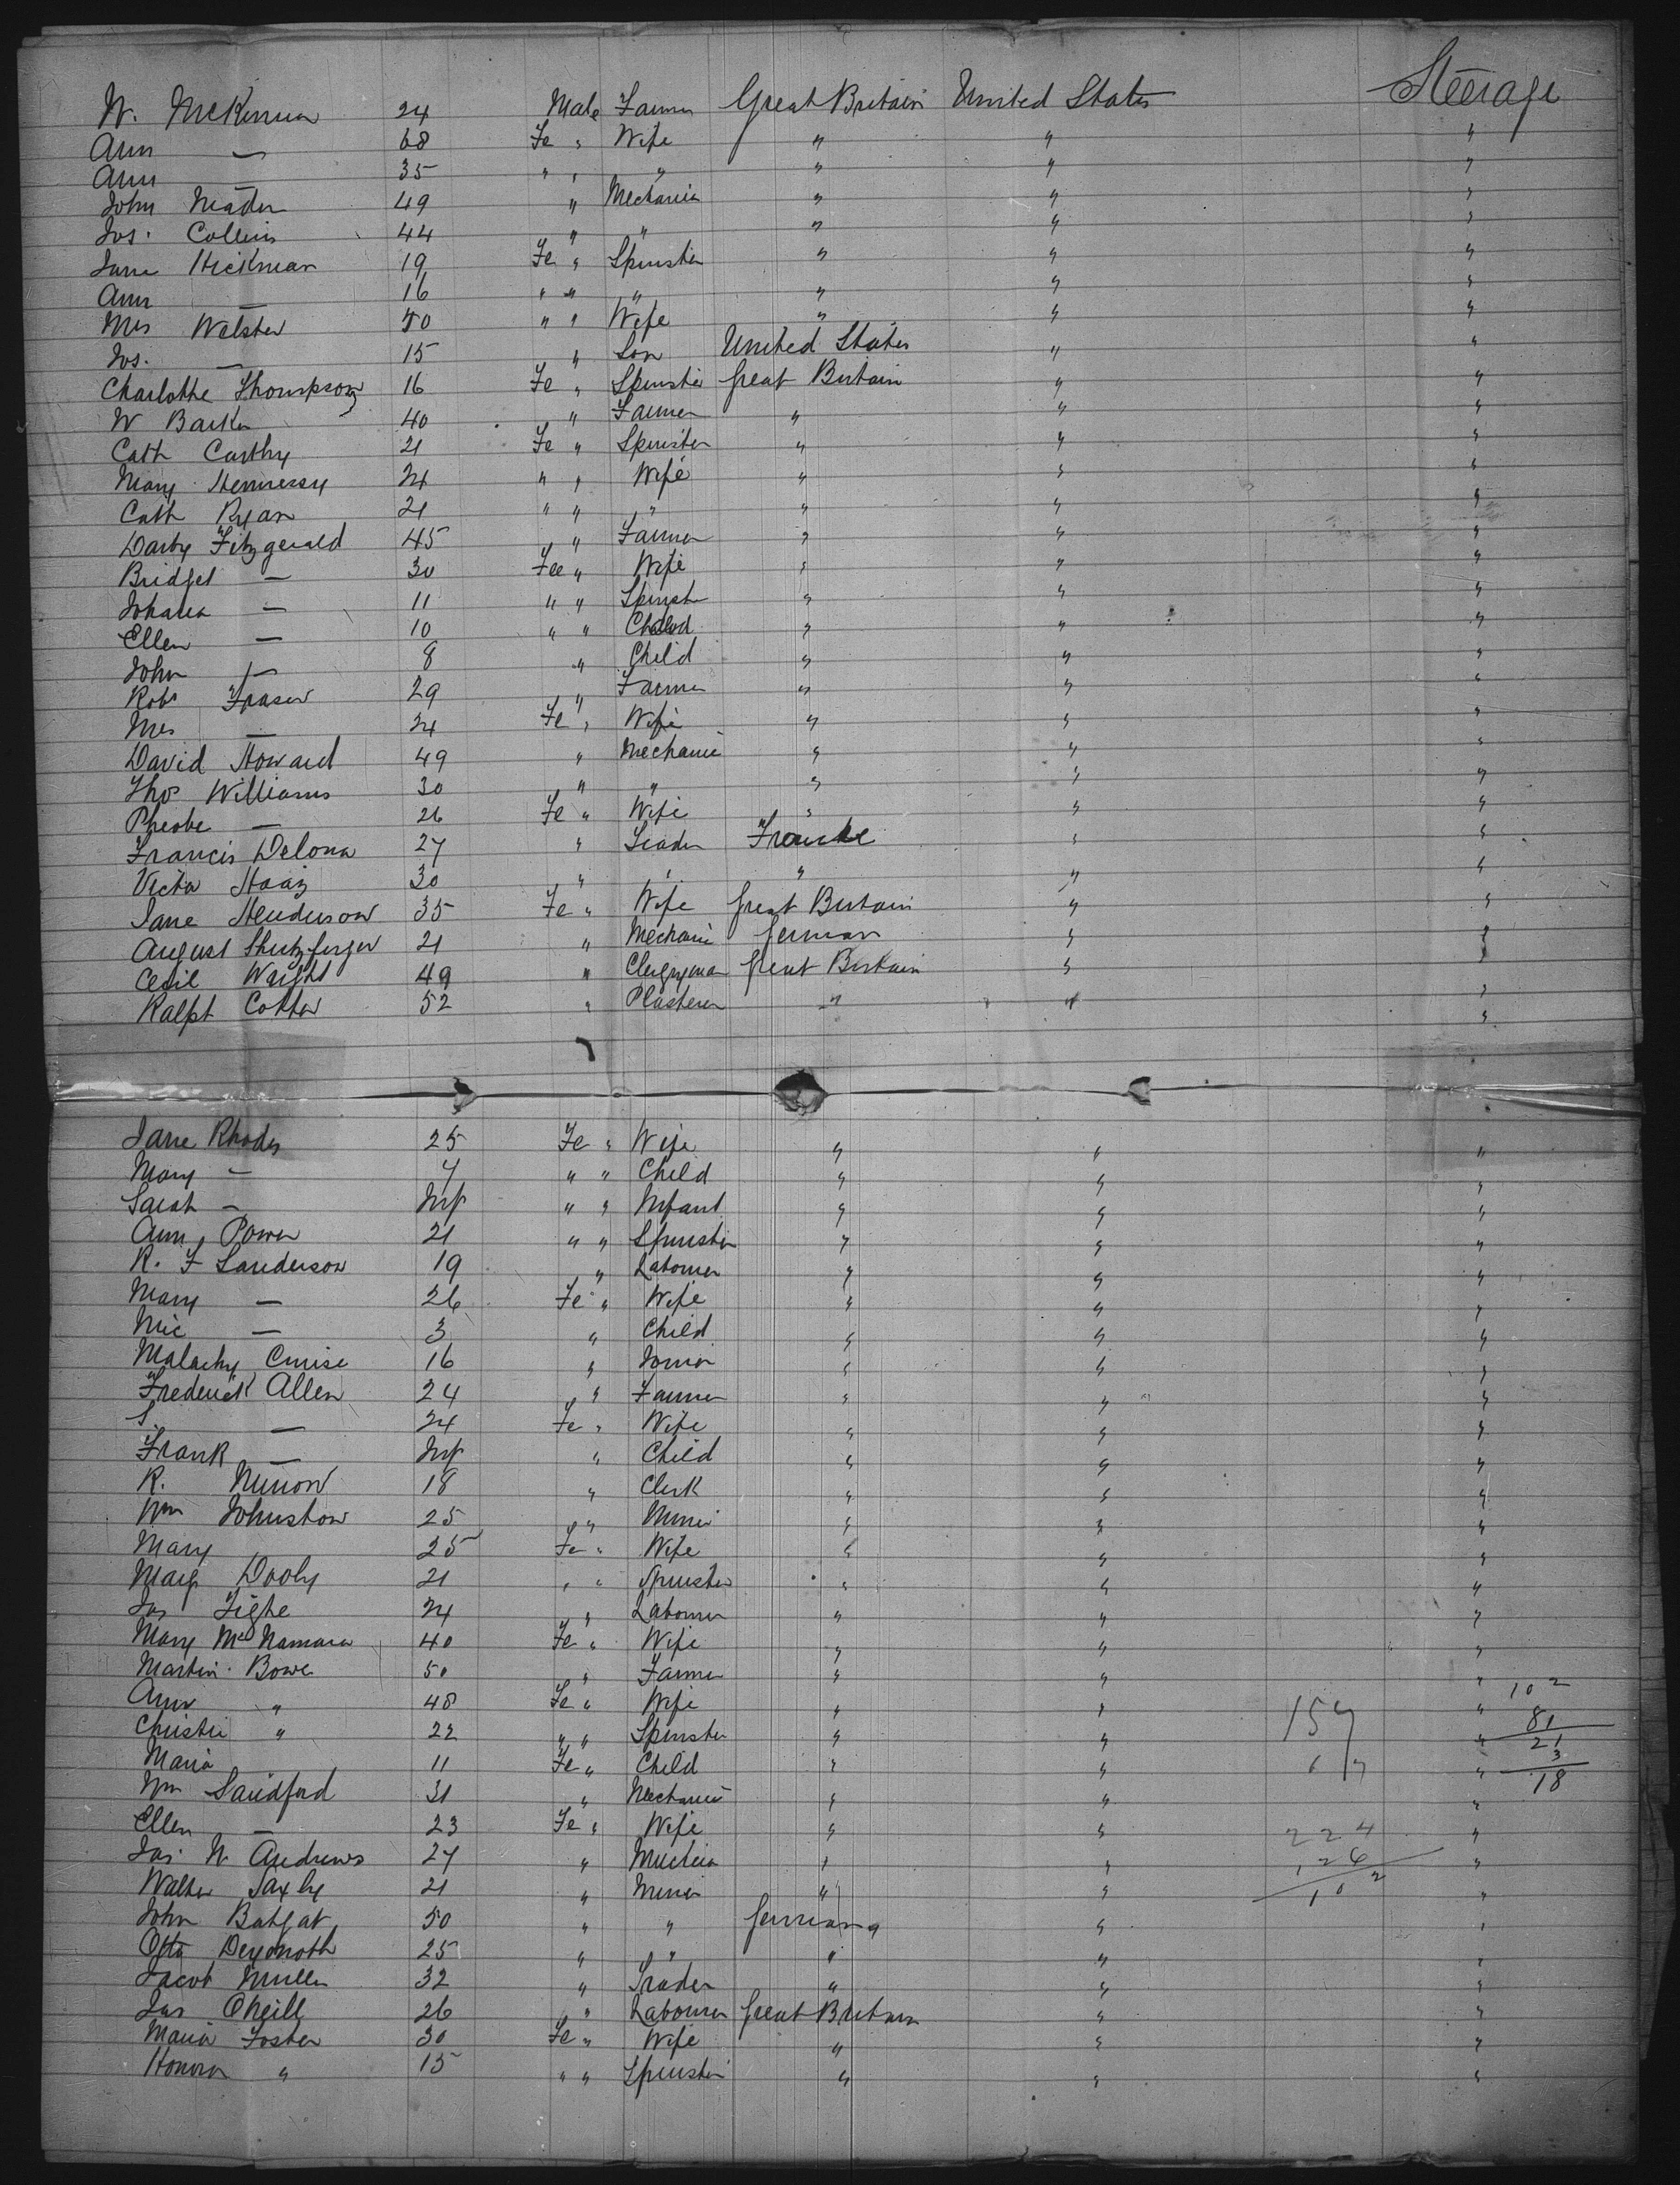 W. McKenna 24 Male Farmer Great Britain United States Steerage
Ann — 68 Fe " Wife " " "
Ann — 35 " " " " " "
John Meader 49 " Mechanic " " "
Jos. Collins 44 " " " " "
Jane Hickman 19 Fe " Spinster " " "
Ann — 16 " " " " " "
Mrs Walster 40 " " Wife " " "
Jos. — 15 " Son United States " "
Charlotte Thompson 16 Fe " Spinster Great Britain " "
W Barker 40 " Farmer " " "
Cath Carthy 21 Fe " Spinster " " "
Mary Hennessy 24 " " Wife " " "
Cath Ryan 21 " " " " " "
Darby Fitzgerald 45 " Farmer " " "
Bridget — 30 Fe " Wife " " "
Johana — 11 " " Spinster " " "
Ellen — 10 " " Child " " "
John — 8 " Child " " "
Robt Fraser 29 " Farmer " " "
Mrs — 24 Fe " Wife " " "
David Howard 49 " Mechanic " " "
Thos Williams 30 " " " " "
Pheobe — 26 Fe " Wife " " "
Francis Delona 27 " Trader France " "
Victor Haaz 30 " " " " "
Jane Henderson 35 Fe " Wife Great Britain " "
August 21 " Mechanic German " "
Cecil Wright 49 " Clergyman Great Britain " "
Ralph Cotter 52 " Plasterer " " "
Jane Rhodes 25 Fe " Wife " " "
Mary — 7 " " Child " " "
Sarah — Inf " " Infant " " "
Ann Power 21 " " Spinster " " "
R. F Sanderson 19 " Labourer " " "
Mary — 26 Fe " Wife " " "
Mic — 3 " Child " " "
Malachy Cruise 16 " Junior " " "
Frederick Allen 24 " Farmer " " "
S — 24 Fe " Wife " " "
Frank — Inf " Child " " "
R. 18 " Clerk " " "
Wm Johnston 25 " Miner " " "
Mary 25 Fe " Wife " " "
Marg Dooly 21 " " Spinster " " "
Jas Tighe 24 " Labourer " " "
Mary McNamara 40 Fe " Wife " " "
Martin Bowe 50 " Farmer " " "
Ann " 48 Fe " Wife " " " 102
Christie " 22 " " Spinster " " 157 " 81
Maria 11 Fe " Child " " 67 " 21 3
Wm Sandford 31 " Mechanic " " " 18
Ellen — 23 Fe " Wife " " 224 "
Jas. W Andrews 27 " " " 126 "
Walter Saxby 21 " Miner " " 102 "
John Batgat 50 " " Germany " "
Otto Deyenroth 25 " " " " "
Jacob Muller 32 " Trader " " "
Jas ONeill 26 " Labourer Great Britain " "
Maria Foster 30 Fe " Wife " " "
Honora " 15 " " Spinster " " "